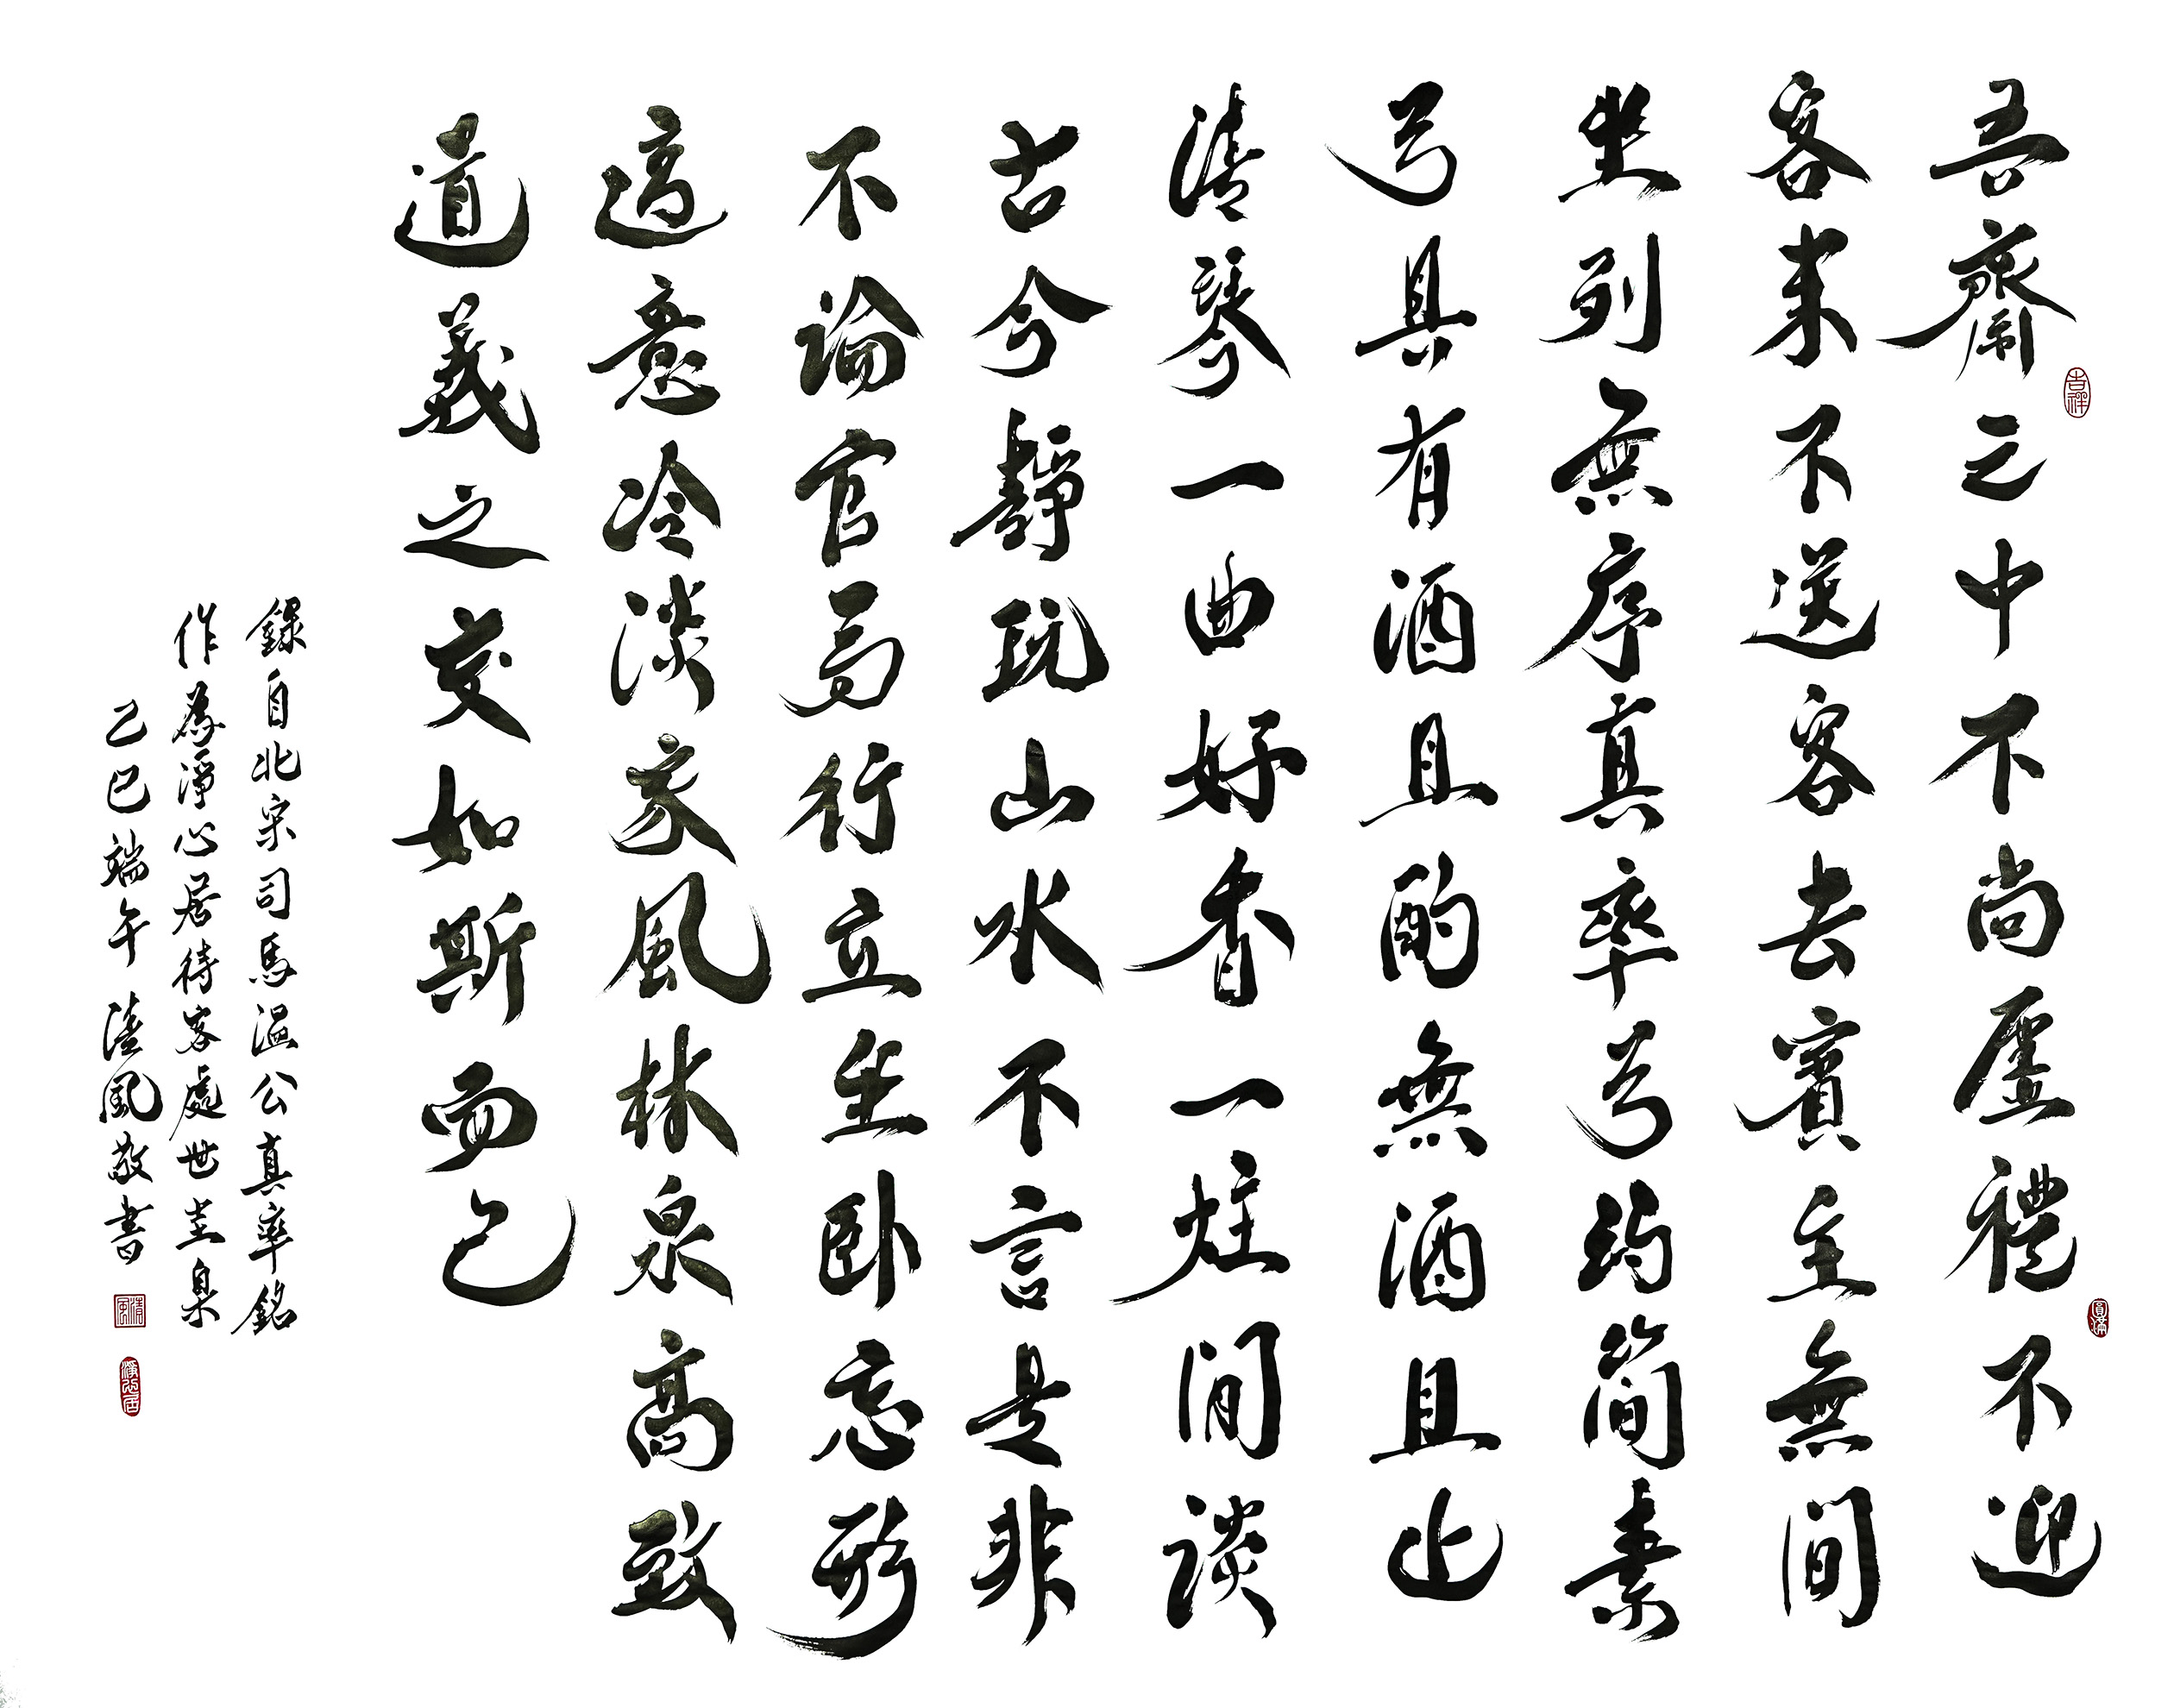 吾齋之中不尚虛禮不迎
客来不送客去賓主無間
坐列無序真率為約簡素
為具有酒且酌無酒且止
清琴一曲好香一炷閒談
古今靜玩山水不言是非
不論官局行立坐卧忘形
適意冷淡家風林泉高致
道義之交如斯而已
錄自北宋司馬溫公真率銘
作為淨心居待客處世圭臬
乙巳端午 清風敬書
吉祥
圓滿
清風
淨心居